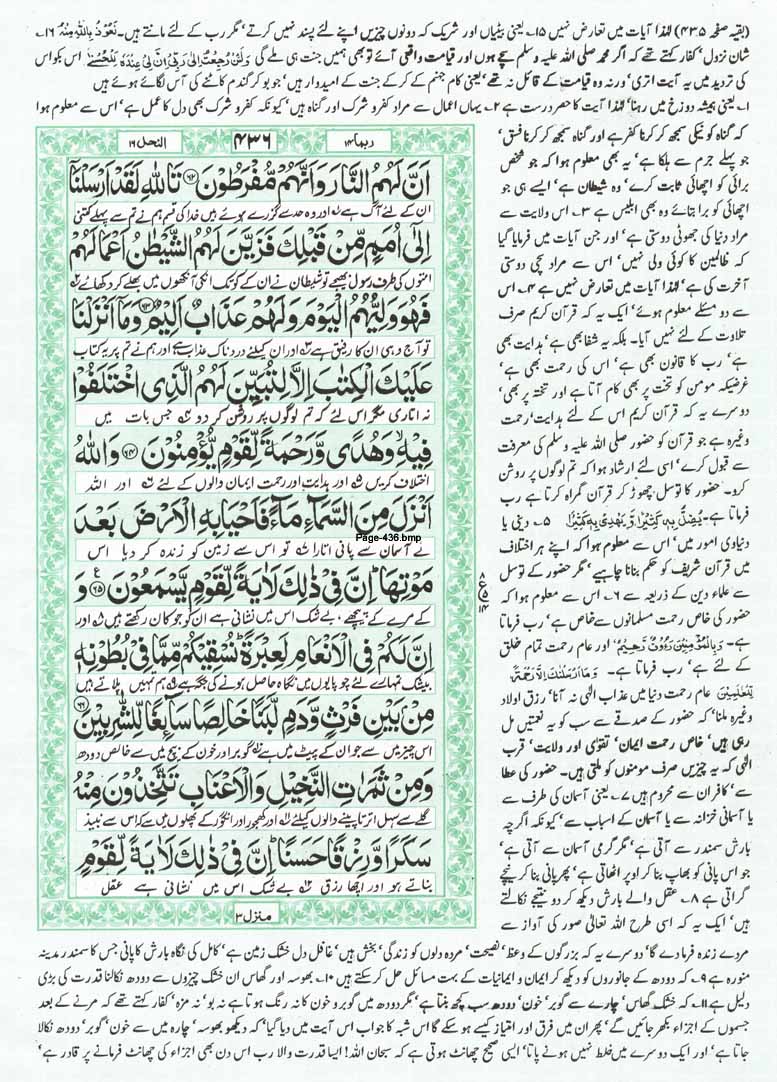 (بقیہ صفحہ ۴۳۵) لہٰذا آیات میں تعارض نہیں ۱۵۔ یعنی بیٹیاں اور شریک کہ دونوں چیزیں اپنے لئے پسند نہیں کرتے، مگر رب کے لئے مانتے ہیں۔ نَعُوْذُ بِاللّٰہِ مِنْہُ ۱۶۔
شان نزول، کفار کہتے تھے کہ اگر محمد صلی اللہ علیہ وسلم سچے ہوں اور قیامت واقعی آئے تو بھی ہمیں جنت ہی ملے گی وَلَئِنْ رُّجِعْتُ اِلٰی رَبِّیْ اِنَّ لِیْ عِنْدَہٗ لَلْحُسْنٰی اس بکواس
کی تردید میں یہ آیت اتری، ورنہ وہ قیامت کے قائل نہ تھے، یعنی کام جہنم کے کر کے جنت کے امیدوار ہیں، جو بو کر گندم کاٹنے کی آس لگائے ہوئے ہیں
۱۔ یعنی ہمیشہ دوزخ میں رہنا، لہٰذا آیت کا حصر درست ہے ۲۔ یہاں اعمال سے مراد کفر و شرک اور گناہ ہیں، کیونکہ کفر و شرک بھی دل کا عمل ہے، اس سے معلوم ہوا
کہ گناہ کو نیکی سمجھ کر کرنا کفر ہے اور گناہ سمجھ کر کرنا فسق،
جو پہلے جرم سے ہلکا ہے، یہ بھی معلوم ہوا کہ جو شخص
برائی کو اچھائی ثابت کرے، وہ شیطان ہے، ایسے ہی جو
اچھائی کو برا بتائے وہ بھی ابلیس ہے ۳۔ اس ولایت سے
مراد دنیا کی جھوٹی دوستی ہے، اور جن آیات میں فرمایا گیا
کہ ظالمین کا کوئی ولی نہیں، اس سے مراد سچی دوستی
آخرت کی ہے، لہٰذا آیات میں تعارض نہیں ہے ۴۔ اس
سے دو مسئلے معلوم ہوئے، ایک یہ کہ قرآن کریم صرف
تلاوت کے لئے نہیں آیا۔ بلکہ یہ شفا بھی ہے، ہدایت بھی
ہے، رب کا قانون بھی ہے، اس کی رحمت بھی ہے،
غرضیکہ مومن کو تخت پر بھی کام آتا ہے اور تختہ پر بھی،
دوسرے یہ کہ قرآن کریم اس کے لئے ہدایت، رحمت
وغیرہ ہے جو قرآن کو حضور صلی اللہ علیہ وسلم کی معرفت
سے قبول کرے، اسی لئے ارشاد ہوا کہ تم لوگوں پر روشن
کرو۔ حضور کا توسل چھوڑ کر قرآن گمراہ کرتا ہے رب
فرماتا ہے۔ یُضِلُّ بِہٖ کَثِیْرًا وَّیَھْدِیْ بِہٖ کَثِیْرًا ۵۔ دینی یا
دنیاوی امور میں، اس سے معلوم ہوا کہ اپنے ہر اختلاف
میں قرآن شریف کو حکم بنانا چاہیے، مگر حضور کے توسل
سے علماء دین کے ذریعہ سے ۶۔ اس سے معلوم ہوا کہ
حضور کی خاص رحمت مسلمانوں سے خاص ہے، رب فرماتا
ہے۔ وَبِالْمُؤْمِنِیْنَ رَءُوْفٌ رَّحِیْمٌ، اور عام رحمت تمام خلق
کے لئے ہے، رب فرماتا ہے۔ وَمَا اَرْسَلْنٰکَ اِلَّا رَحْمَۃً
لِّلْعٰلَمِیْنَ عام رحمت دنیا میں عذاب الٰہی نہ آنا، رزق اولاد
وغیرہ ملنا، کہ حضور کے صدقے سے سب کو یہ نعمتیں مل
رہی ہیں، خاص رحمت ایمان، تقویٰ اور ولایت، قرب
الٰہی کہ یہ چیزیں صرف مومنوں کو ملتی ہیں۔ حضور کی عطا
سے، کافر ان سے محروم ہیں ۷۔ یعنی آسمان کی طرف سے
یا آسمانی خزانہ سے یا آسمان کے اسباب سے، کیونکہ اگرچہ
بارش سمندر سے آتی ہے، مگر گرمی آسمان سے آتی ہے،
جو اس پانی کو بھاپ بنا کر اوپر اٹھاتی ہے، پھر پانی بنا کر نیچے
گراتی ہے ۸۔ عقل والے بارش دیکھ کر دو نتیجے نکالتے
ہیں، ایک یہ کہ اسی طرح اللہ تعالیٰ صور کی آواز سے
ربما ۱۴
۴۳۶
النحل ۱۶
اَنَّ لَهُمُ النَّارَ وَاَنَّهُمْ مُّفْرَطُوْنَ ﴿۶۲﴾ تَاللّٰهِ لَقَدْ اَرْسَلْنَاۤ
ان کے لئے آگ ہے اور وہ حد سے گزرے ہوئے ہیں خدا کی قسم ہم نے تم سے پہلے کتنی
اِلٰۤى اُمَمٍ مِّنْ قَبْلِكَ فَزَيَّنَ لَهُمُ الشَّيْطٰنُ اَعْمَالَهُمْ
امتوں کی طرف رسول بھیجے تو شیطان نے ان کے کوتک انکی آنکھوں میں بھلے کر دکھائے
فَهُوَ وَلِيُّهُمُ الْيَوْمَ وَلَهُمْ عَذَابٌ اَلِيْمٌ ﴿۶۳﴾ وَمَاۤ اَنْزَلْنَا
تو آج وہی ان کا رفیق ہے اور ان کیلئے دردناک عذاب ہے اور ہم نے تم پر یہ کتاب
عَلَيْكَ الْكِتٰبَ اِلَّا لِتُبَيِّنَ لَهُمُ الَّذِى اخْتَلَفُوْا
نہ اتاری مگر اس لئے کہ تم لوگوں پر روشن کر دو جس بات میں
فِيْهِ ۙ وَهُدًى وَّرَحْمَةً لِّقَوْمٍ يُّؤْمِنُوْنَ ﴿۶۴﴾ وَاللّٰهُ
اختلاف کریں اور ہدایت اور رحمت ایمان والوں کے لئے اور اللہ
اَنْزَلَ مِنَ السَّمَآءِ مَآءً فَاَحْيَا بِهِ الْاَرْضَ بَعْدَ
Page-436.bmp
نے آسمان سے پانی اتارا تو اس سے زمین کو زندہ کر دیا اس
مَوْتِهَا ؕ اِنَّ فِىْ ذٰلِكَ لَاٰيَةً لِّقَوْمٍ يَّسْمَعُوْنَ ﴿۶۵﴾ وَ
کے مرے کے پیچھے، بے شک اس میں نشانی ہے ان کو جو کان رکھتے ہیں اور
اِنَّ لَكُمْ فِى الْاَنْعَامِ لَعِبْرَةً ؕ نُسْقِيْكُمْ مِّمَّا فِىْ بُطُوْنِهٖ
بیشک تمہارے لئے چوپایوں میں نگاہ حاصل ہونے کی جگہ ہے ہم تمہیں پلاتے ہیں
مِنْۢ بَيْنِ فَرْثٍ وَّدَمٍ لَّبَنًا خَالِصًا سَآئِغًا لِّلشّٰرِبِيْنَ ﴿۶۶﴾
اس چیز میں سے جو ان کے پیٹ میں ہے گوبر اور خون کے بیچ میں سے خالص دودھ
وَمِنْ ثَمَرٰتِ النَّخِيْلِ وَالْاَعْنَابِ تَتَّخِذُوْنَ مِنْهُ
گلے سے سہل اترتا پینے والوں کیلئے اور کھجور اور انگور کے پھلوں میں سے کہ اس سے نبیذ
سَكَرًا وَّرِزْقًا حَسَنًا ؕ اِنَّ فِىْ ذٰلِكَ لَاٰيَةً لِّقَوْمٍ
بناتے ہو اور اچھا رزق بے شک اس میں نشانی ہے عقل
منزل ۳
مردے زندہ فرما دے گا، دوسرے یہ کہ بزرگوں کے وعظ، نصیحت، مردہ دلوں کو زندگی، بخش ہیں، غافل دل خشک زمین ہے، کامل کی نگاہ بارش کا پانی جس کا سمندر مدینہ
منورہ ہے ۹۔ کہ دودھ کے جانوروں کو دیکھ کر ایمان و ایمانیات کے بہت مسائل حل کر سکتے ہیں ۱۰۔ بھوسہ اور گھاس ان خشک چیزوں سے دودھ نکالنا قدرت کی بڑی
دلیل ہے ۱۱۔ کہ خشک گھاس، چارے سے گوبر، خون، دودھ سب کچھ بنتا ہے، مگر دودھ میں گوبر و خون کا نہ رنگ ہوتا ہے نہ بو، نہ مزہ، کفار کہتے تھے کہ مرنے کے بعد
جسموں کے اجزاء بکھر جائیں گے، پھر ان میں فرق اور امتیاز کیسے ہو سکے گا اس شبہ کا جواب اس آیت میں دیا گیا، کہ دیکھو بھوسہ، چارہ میں سے خون، گوبر، دودھ نکالا
جاتا ہے، اور ایک دوسرے میں خلط نہیں ہونے پاتا، ایسی صحیح چھانٹ ہوتی ہے کہ سبحان اللہ! ایسا قدرت والا رب اس دن بھی اجزاء کی چھانٹ فرمانے پر قادر ہے،